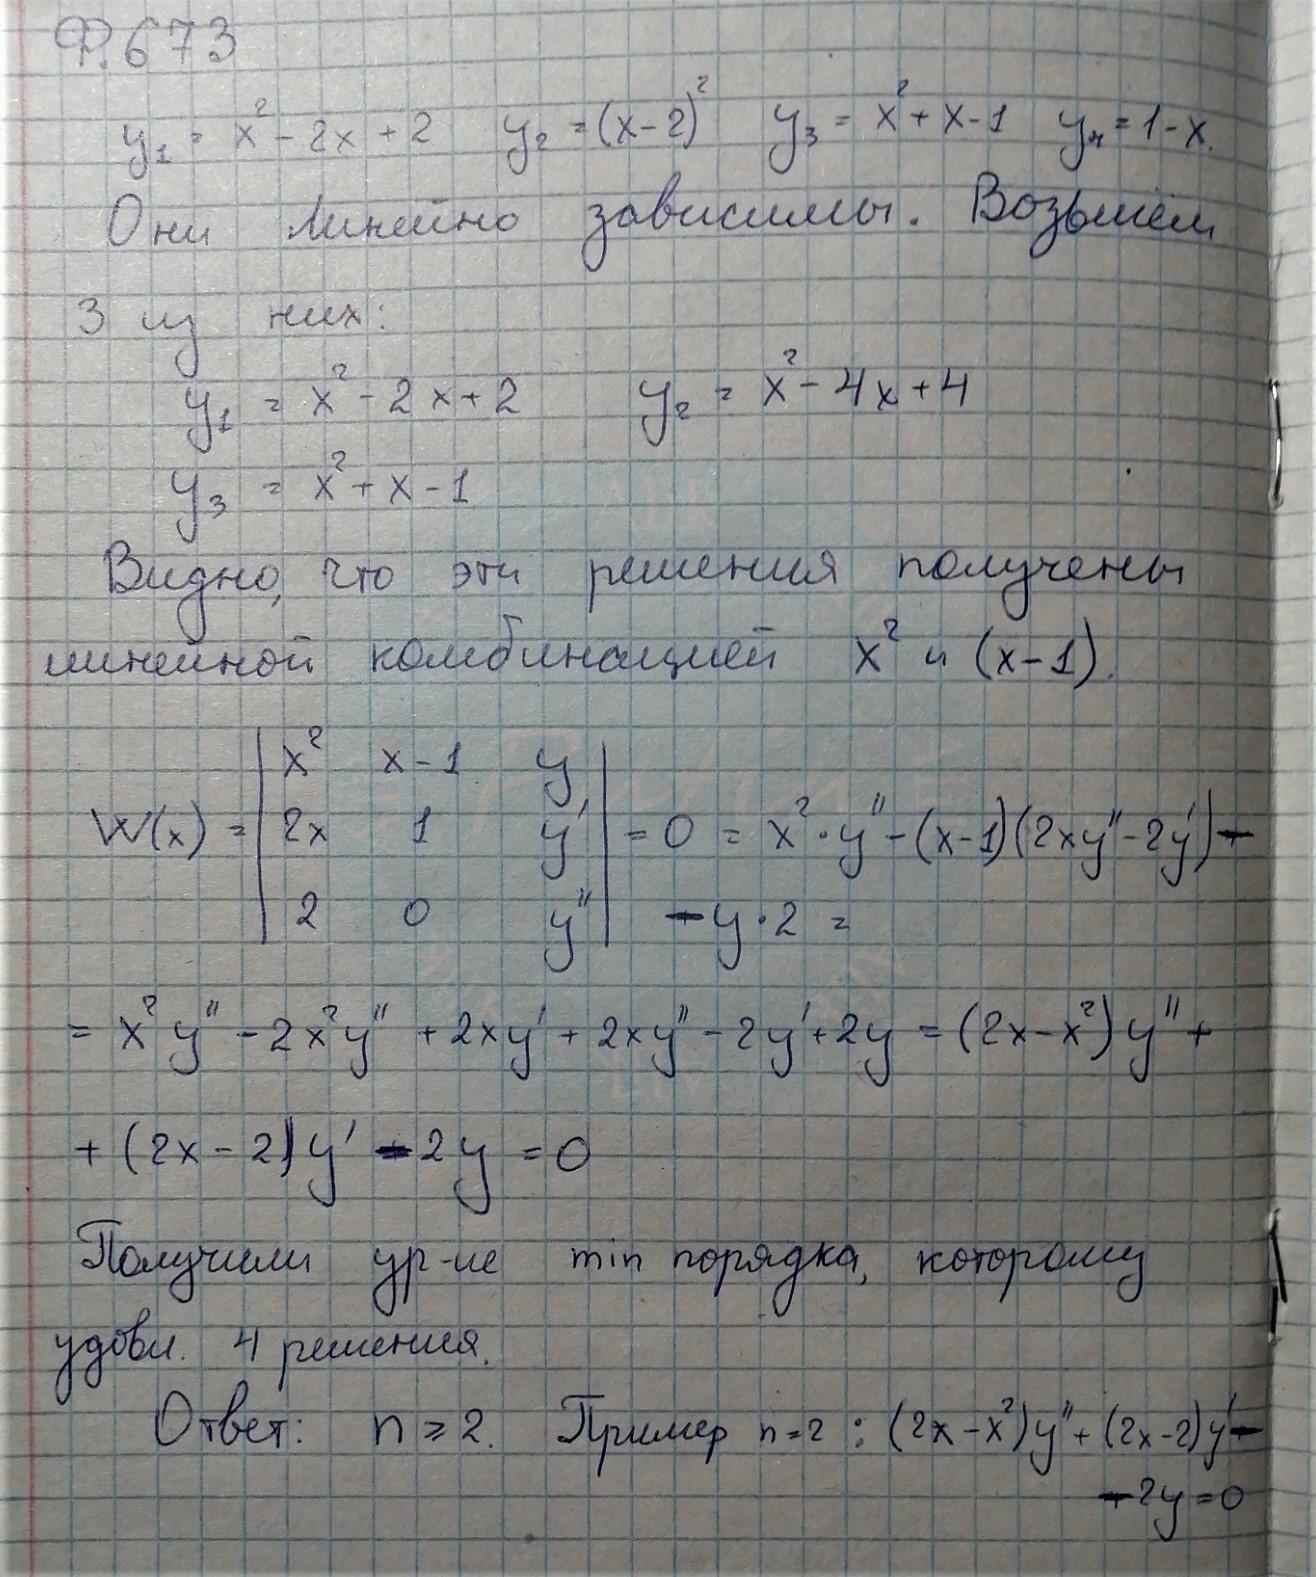 Ф.673
y₁ = x² - 2x + 2   y₂ = (x-2)²   y₃ = x² + x - 1   y₄ = 1 - x.
Они линейно зависимы. Возьмем
3 из них:
y₁ = x² - 2x + 2   y₂ = x² - 4x + 4
y₃ = x² + x - 1
Видно, что эти решения получены
линейной комбинацией x² и (x-1).
W(x) = | x²   x-1   y |
| 2x   1   y' | = 0 = x²·y'' - (x-1)(2xy'' - 2y') -
| 2   0   y'' | - y·2 =
= x²y'' - 2x²y'' + 2xy' + 2xy'' - 2y' + 2y = (2x - x²)y'' +
+ (2x - 2)y' - 2y = 0
Получили ур-ие min порядка, которому
удовл. 4 решения.
Ответ: n ≥ 2. Пример n=2 : (2x - x²)y'' + (2x-2)y' -
- 2y = 0